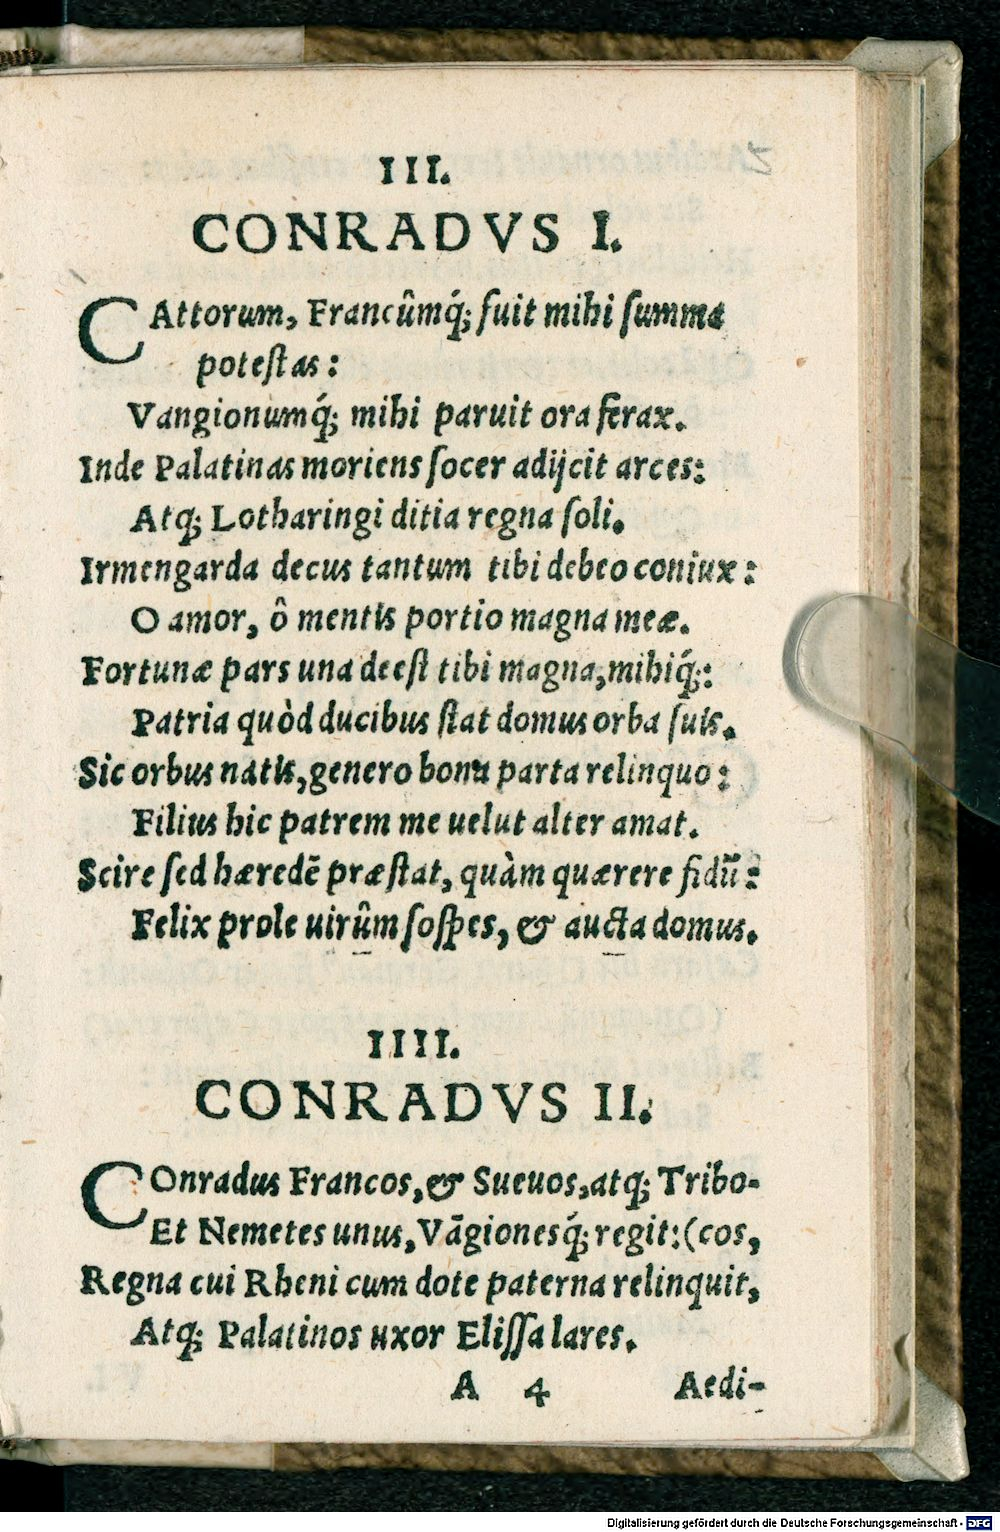 5
III.
CONRADVS I.
CAttorum, Francûmq́; fuit mihi ſumma
poteſtas:
Vangionumq́; mihi paruit ora ferax.
Inde Palatinas moriens ſocer adijcit arces:
Atq; Lotharingi ditia regna ſoli.
Irmengarda decus tantum tibi debeo coniux:
O amor, ô mentis portio magna meæ.
Fortunæ pars una deeſt tibi magna, mihiq́;:
Patria quòd ducibus ſtat domus orba ſuis.
Sic orbus natis, genero bona parta relinquo:
Filius hic patrem me uelut alter amat.
Scire ſed hæredē præſtat, quàm quærere fidū:
Felix prole uirûm ſoſpes, & aucta domus.
IIII.
CONRADVS II.
COnradus Francos, & Sueuos, atq; Tribo-
Et Nemetes unus, Vāgionesq́; regit: (cos,
Regna cui Rheni cum dote paterna relinquit,
Atq; Palatinos uxor Eliſſa lares.
A 4 Aedi-
Digitalisierung gefördert durch die Deutsche Forschungsgemeinschaft - DFG